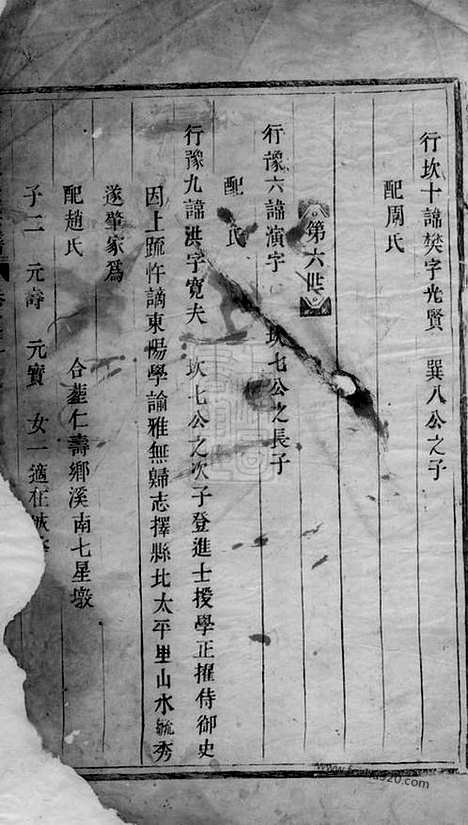 行坎十諱樊字光賢　巽八公之子
配周氏
第六世
行豫六諱演字　坎七公之長子
配　氏
行豫九諱洪字寬夫　坎七公之次子登進士授學正擢侍御史
因上疏忤謫東陽學諭雅無歸志擇縣北太平里山水毓秀
遂肇家焉
配趙氏　合葬仁壽鄉溪南七星墩
子二　元壽　元寳　女一適在城